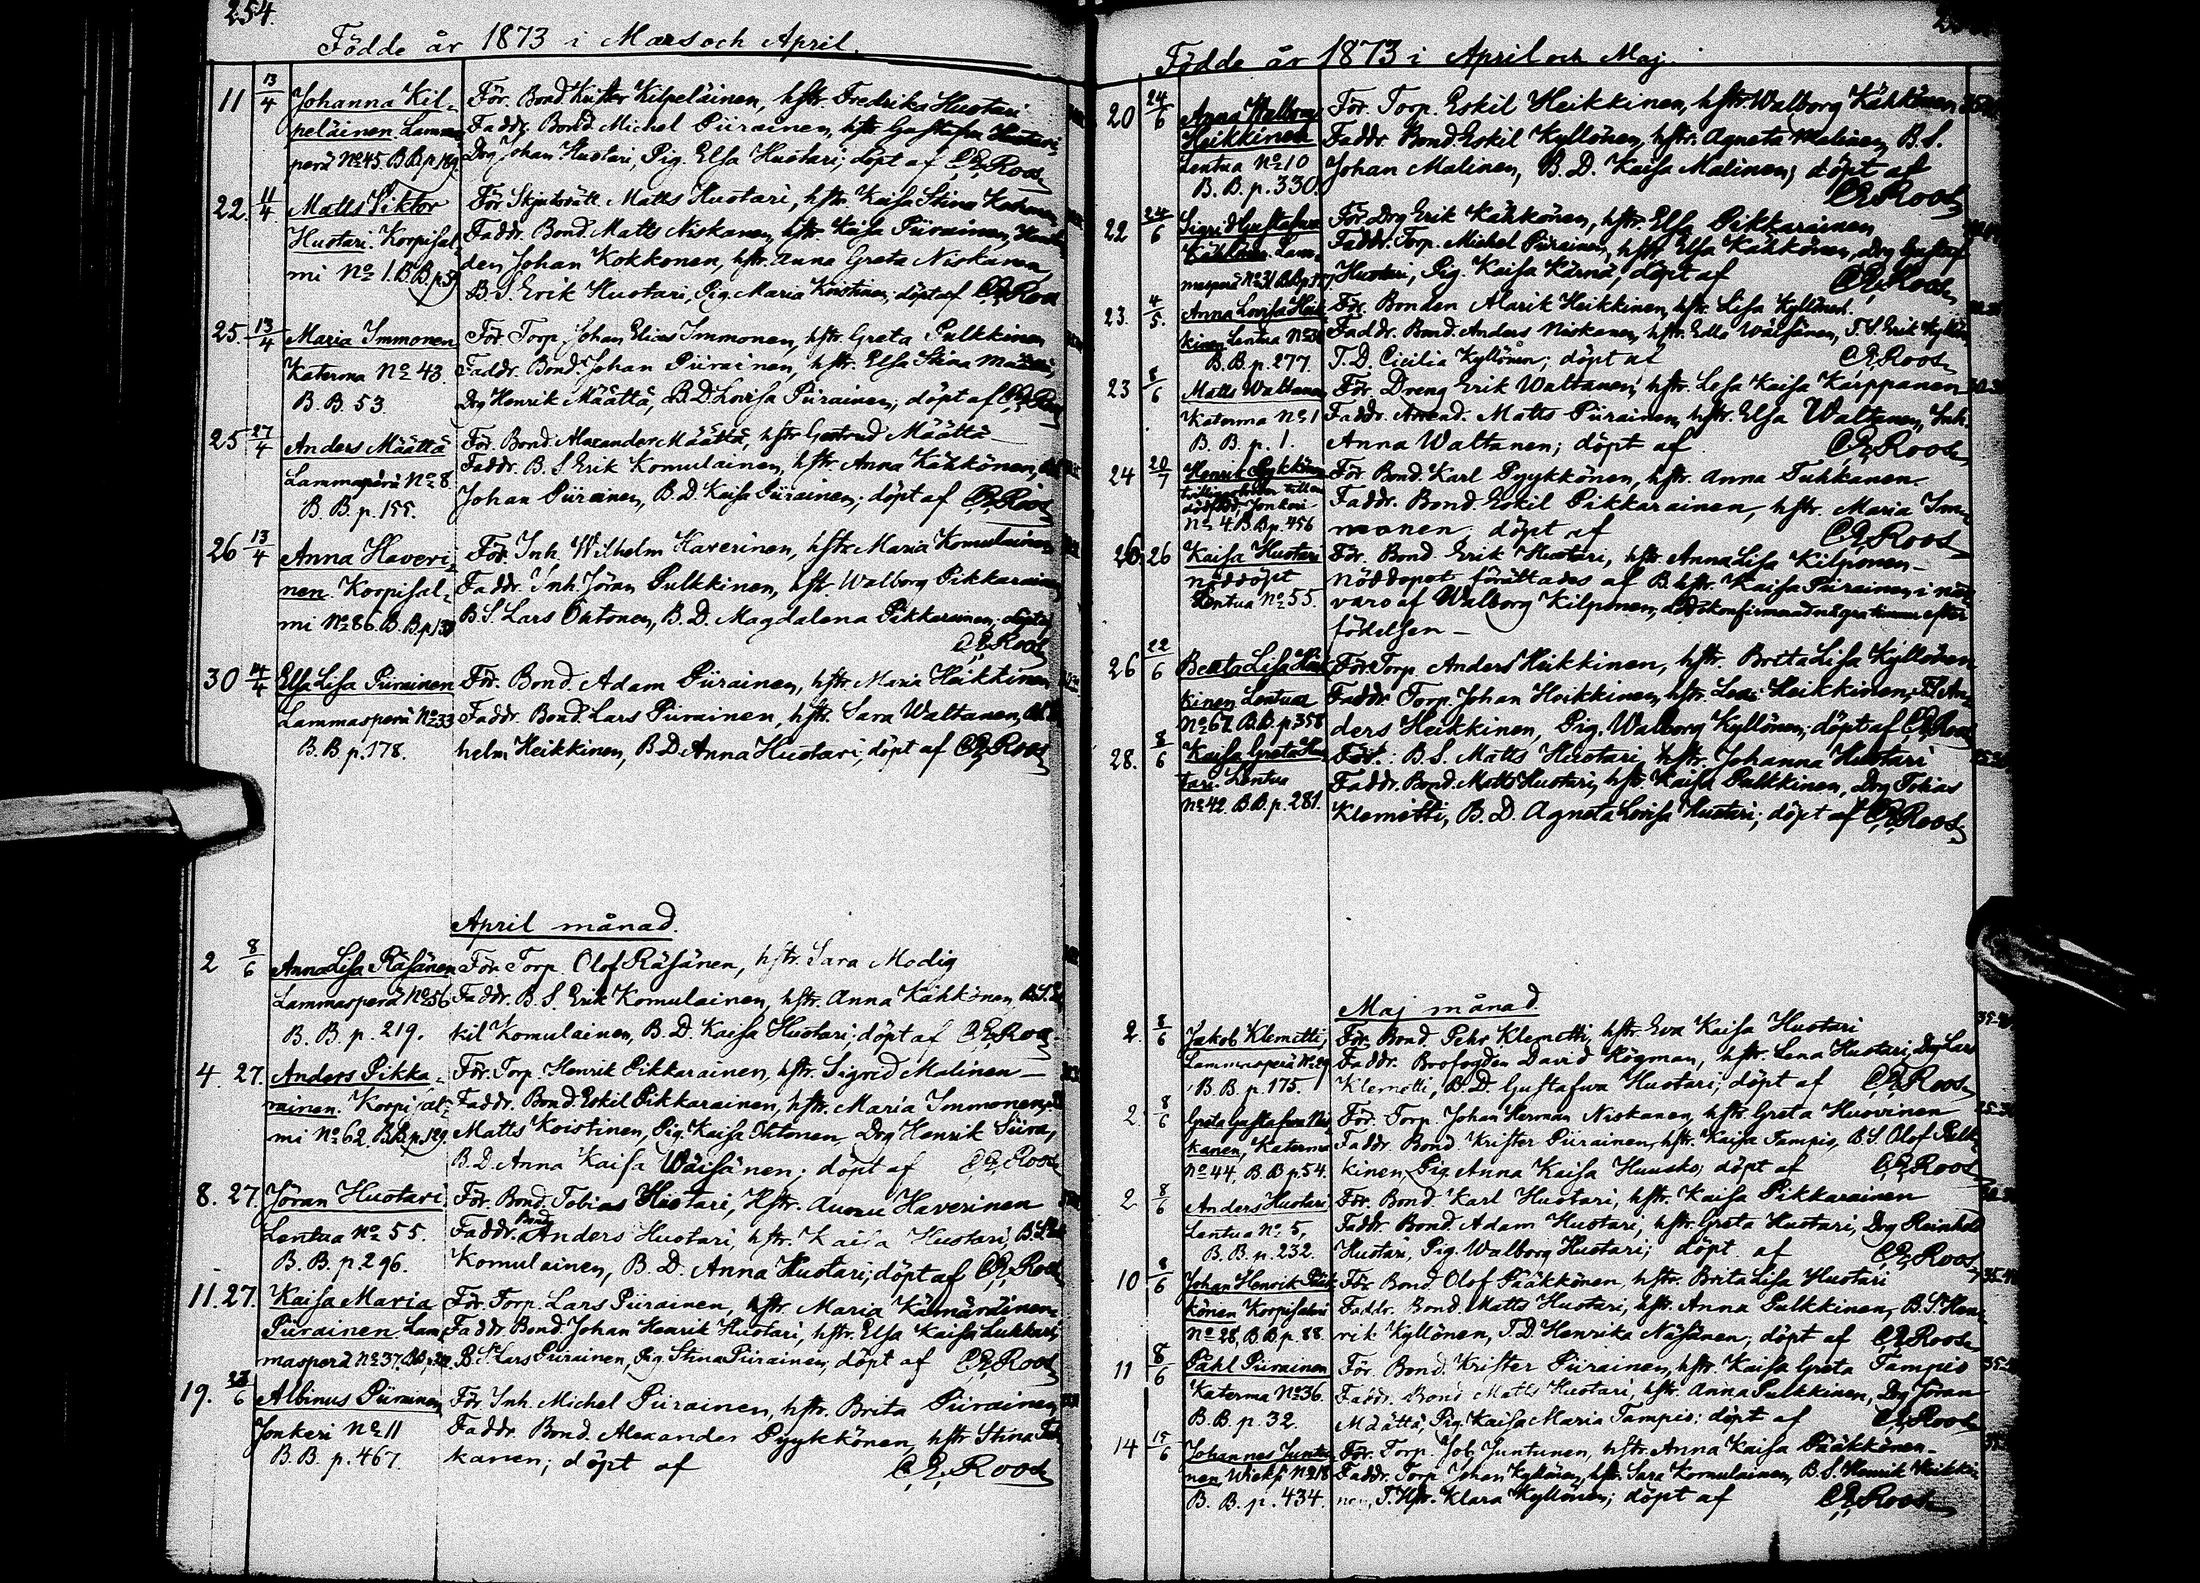 254.
Födde år 1873 i Mars och April.
11 13/4 Johanna Kil- För. Bond Krister Kilpeläinen, hstr. Fredrika Huotari
peläinen. Lamma Faddr. Bond. Michel Piirainen, hstr. Gustafva Huotari,
perä No 45. B.B.p.189. Drg Johan Huotari, Pig. Elsa Huotari; döpt af C.E. Roos
22. 11/4. Matts Viktor För. Matts Huotari, hstr. Kaisa Stina
Huotari. Korpisal- Faddr. Bond. Matts Niskanen, hstr. Kaisa Piirainen,
mi No 1. B.B.p.59 den Johan Kokkonen, hstr. Anna Greta Niskanen,
B.S. Erik Huotari, Pig. Maria Koistinen; döpt af C.E. Roos
25. 13/4 Maria Immonen För. Torp. Johan Elias Immonen, hstr. Greta Pulkkinen
Katerma No 43. Faddr. Bond. Johan Piirainen, hstr. Elsa Stina Määttä,
B.B. 53. Drg Henrik Määttä, B.D. Lovisa Piirainen; döpt af C.E. Roos
25 27/4 Anders Määttä För. Bond Alexander Määttä, hstr Gertrud Määttä—
Lammasperä No 8 Faddr. B.S. Erik Komulainen, hstr. Anna Kähkönen,
B.B. p. 155. Johan Piirainen, B.D. Kaisa Piirainen; döpt af C.E. Roos
26 13/4 Anna Haveri- För. Inh. Wilhelm Haverinen, hstr. Maria Komulainen
nen. Korpisal- Faddr. Inh. Jöran Pulkkinen, hstr. Walborg Pikkarainen
mi No 86. B.B.p.139 B.S. Lars Ohtonen, B.D. Magdalena Pikkarainen; döpt af
C.E. Roos
30 14/4 Elsa Lisa Piirainen För. Bond. Adam Piirainen, hstr. Maria Heikkinen
Lammasperä No 33 Faddr. Bond. Lars Piirainen, hstr. Sara Waltanen,
B.B. p. 178. helm Heikkinen, B.D. Anna Huotari; döpt af C.E. Roos
April månad.
2 8/6 Anna Lisa Räsänen För. Torp. Olof Räsänen, hstr. Sara Modig
Lammasperä No 56 Faddr. B.S. Erik Komulainen, hstr. Anna Kähkönen, B.S. Es
B.B. p. 219. kil Komulainen, B.D. Kaisa Huotari; döpt af C.E. Roos
4. 27. Anders Pikka- För. Torp. Henrik Pikkarainen, hstr. Sigrid Malinen—
rainen. Korpisal- Faddr. Bond. Eskil Pikkarainen, hstr. Maria Immonen,
mi No 62. B.B.p.129. Matts Koistinen, Pig. Kaisa Ohtonen Drg Henrik Siira,
B.D. Anna Kaisa Wäisänen; döpt af C.E. Roos
8. 27. Jöran Huotari För. Bond. Tobias Huotari, Hstr. Anna Haverinen
Lentua No 55. Faddr. Bond. Anders Huotari, hstr. Kaisa Huotari,
B.B. p 296. Komulainen, B.D. Anna Huotari; döpt af C.E. Roos
11. 27. Kaisa Maria För. Torp. Lars Piirainen, hstr Maria Kämäräinen
Piirainen Lam- Faddr. Bond. Johan Henrik Huotari, hstr. Elsa Kaisa Lukkari,
masperä No 37. B.S. Lars Piirainen, Pig. Stina Piirainen, döpt af C.E. Roos
19. 28/6 Albinus Piirainen För. Inh. Michel Piirainen, hstr. Brita Piirainen,
Jonkeri No 11 Faddr. Bond. Alexander Pyykkönen, hstr Stina Tuh
B.B. p. 467. kanen; döpt af C.E. Roos
Födde år 1873 i April och Maj.
20 24/6 Anna Walborg För. Torp. Eskil Heikkinen, hstr. Walborg Kähkönen
Heikkinen Faddr. Bond. Eskil Kyllönen, hstr. Agneta Malinen, B.S.
Lentua No 10 Johan Malinen, B.D. Kaisa Malinen; döpt af
B.B. p. 330. C.E. Roos
22 24/6 Sigrid Gustafva För. Drg Erik Kähkönen, hstr. Elsa Pikkarainen
Kähkönen. Lam- Faddr. Torp. Michel Piirainen, hstr Elsa Kähkönen, Drg Gustaf
masperä No 31 Huotari, Pig. Kaisa Kärnä, döpt af C.E. Roos
23. 4/5. Anna Lovisa Heik För. Bonden Alarik Heikkinen, hstr. Lisa Kyllönen.
kinen Lentua Faddr. Bond. Anders Niskanen, hstr. Wäisänen, T.S. Erik Kyllönen
B.B. p. 277. T.D. Cicilia Kyllönen; döpt af C.E. Roos
23 8/6 Matts Waltanen För. Dreng Erik Waltanen, hstr. Lisa Kaisa Karppanen
Katerma No 1 Faddr. Arrend. Matts Piirainen, hstr. Elsa Waltanen, Inh.
B.B. p. 1. Anna Waltanen; döpt af C.E. Roos
24 20/7 Henrik Pyykkönen För. Bond. Karl Pyykkönen, hstr. Anna Tuhkanen.
Jonkeri Faddr. Bond. Eskil Pikkarainen, hstr. Maria Im-
No 4. B.B.p. 456 monen döpt af C.E. Roos
26. 26 Kaisa Huotari För. Bond. Erik Huotari, hstr. Anna Lisa Kilponen—
nöddöpt Nöddopet förättades af B.hstr. Kaisa Piirainen i när
Lentua No 55. varo af Walborg Kilponen, efter
födelsen—
26 22/6 Beata Lisa Heik För. Torp. Anders Heikkinen, hstr. Brita Lisa Kyllönen
kinen Lentua Faddr. Torp. Johan Heikkinen, hstr. Heikkinen, An-
No 67 B.B. p. 358 ders Heikkinen, Pig. Walborg Kyllönen; döpt af C.E. Roos
28. 8/6 Kaisa Greta Huo För.: B.S. Matts Huotari, hstr. Johanna Huotari
tari. Lentua Faddr. Bond. Matts Huotari, hstr. Kaisa Pulkkinen, Drg Tobias
No 42. B.B. p. 281. Klemetti, B.D. Agneta Lovisa Huotari; döpt af C.E. Roos
Maj månad.
2. 8/6 Jakob Klemetti, För. Bond. Pehr Klemetti, hstr. Eva Kaisa Huotari
Lammasperä No 29 Faddr. Brofogden David Högman, hstr. Lena Huotari, Drg Lars
B.B. p. 175. Klemetti, B.D. Gustafva Huotari; döpt af C.E. Roos
2. 8/6 Greta Gustafva Nis För. Torp. Johan Herman Niskanen, hstr. Greta Huovinen
kanen, Katerma Faddr. Bond. Krister Piirainen, hstr. Kaisa Tampio, B.S. Olof Pulk
No 44, B.B.p.54. kinen, Pig. Anna Kaisa Huusko; döpt af C.E. Roos
2 8/6 Anders Huotari För. Bond Karl Huotari, hstr. Kaisa Pikkarainen
Lentua No 5, Faddr. Bond. Adam Huotari, hstr. Greta Huotari, Drg Reinhold
B.B. p. 232. Huotari, Pig. Walborg Huotari; döpt af C.E. Roos
10 8/6 Johan Henrik Pääk För. Bond Olof Pääkkönen, hstr. Brita Lisa Huotari
könen Korpisalmi Faddr. Bond. Matts Huotari, hstr. Anna Pulkkinen, B.S. Hen-
No 28, B.B.p. 88. rik Kyllönen, T.D. Henrika Räsänen; döpt af C.E. Roos
11 8/6 Påhl Piirainen För. Bond. Krister Piirainen, hstr. Kaisa Greta Tampio
Katerma No 36. Faddr. Bond Matts Huotari, hstr. Anna Pulkkinen, Drg Jöran
B.B. p. 32. Määttä, Pig. Kaisa Maria Tampio; döpt af C.E. Roos
14 15/6 Johannes Juntu För. Torp. Job Juntunen, hstr. Anna Kaisa Pääkkönen—
nen, Wieksi No 18 Faddr. Torp. Johan Kyllönen, hstr. Sara Komulainen, B.S. Henrik Heikki
B.B. p. 434. nen, T.Hstr. Klara Kyllönen; döpt af C.E. Roos